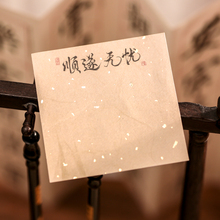 顺遂无忧